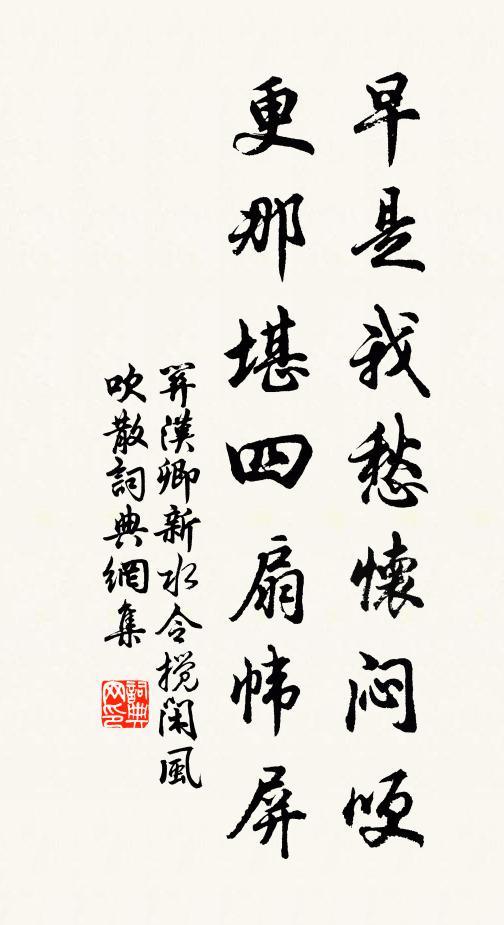 早是我愁懷悶哽
更那堪四扇幃屏
關漢卿新水令攪閑風
吹散詞典網集
詞典網印